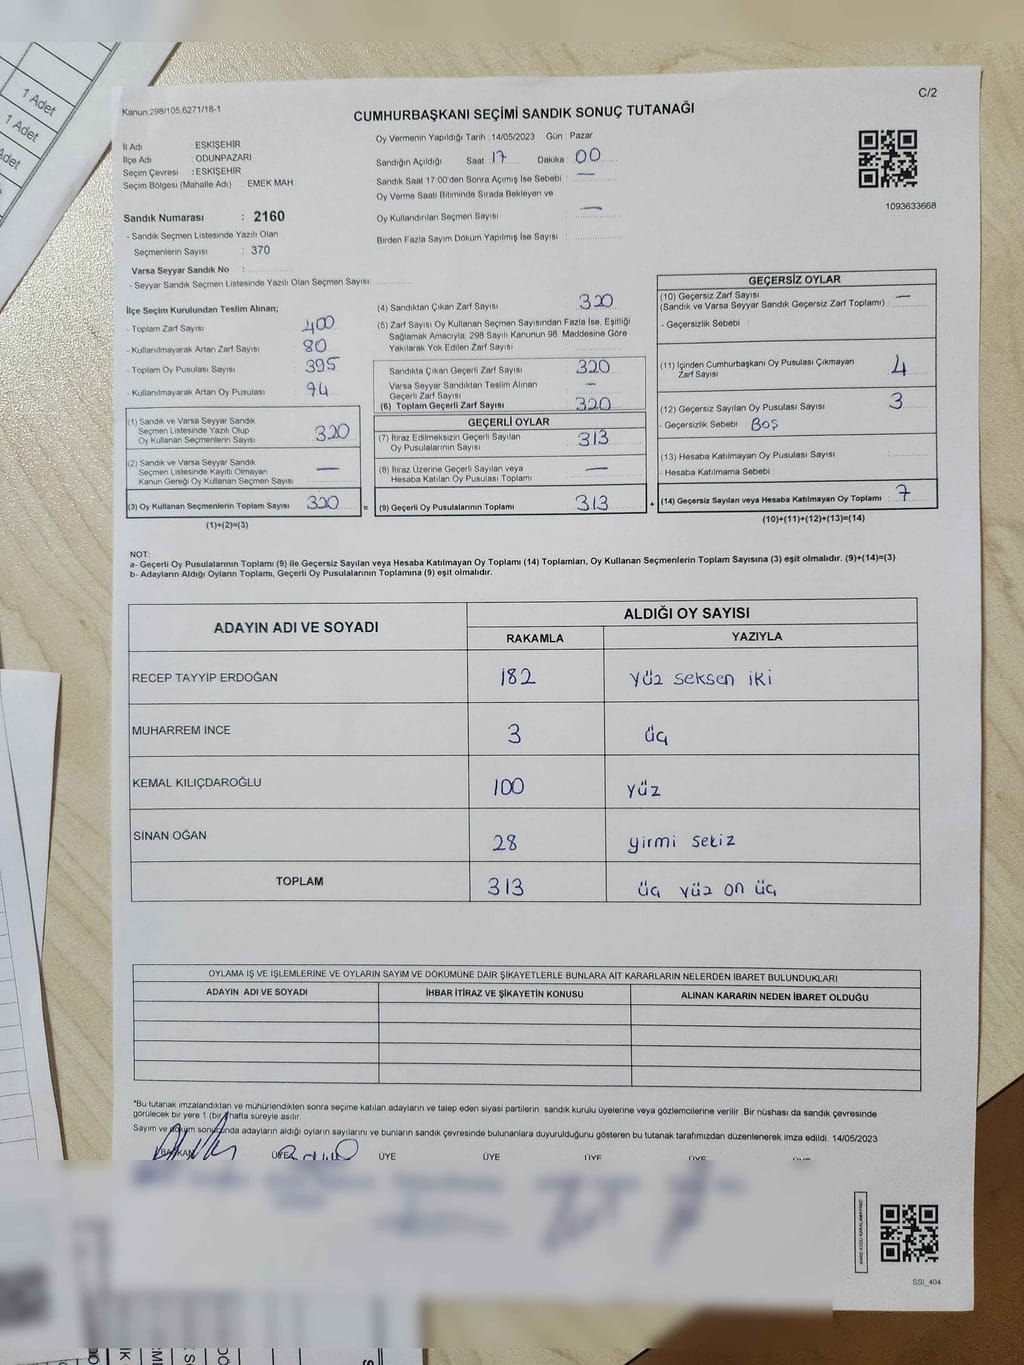 1 Adet
1 Adet
Adet
C/2
Kanun 298/105,6271/18-1
CUMHURBAŞKANI SEÇİMİ SANDIK SONUÇ TUTANAĞI
İl Adı : ESKİŞEHİR
İlçe Adı : ODUNPAZARI
Seçim Çevresi : ESKİŞEHİR
Seçim Bölgesi (Mahalle Adı) : EMEK MAH.
Oy Vermenin Yapıldığı Tarih : 14/05/2023 Gün : Pazar
Sandığın Açıldığı Saat 17 Dakika 00
Sandık Saat 17:00'den Sonra Açımış İse Sebebi : —
Oy Verme Saati Bitiminde Sırada Bekleyen ve
Oy Kullandırılan Seçmen Sayısı : —
Birden Fazla Sayım Döküm Yapılmış İse Sayısı :
1093633668
Sandık Numarası : 2160
- Sandık Seçmen Listesinde Yazılı Olan
Seçmenlerin Sayısı : 370
Varsa Seyyar Sandık No :
- Seyyar Sandık Seçmen Listesinde Yazılı Olan Seçmen Sayısı:
İlçe Seçim Kurulundan Teslim Alınan;
- Toplam Zarf Sayısı 400
- Kullanılmayarak Artan Zarf Sayısı 80
- Toplam Oy Pusulası Sayısı 395
- Kullanılmayarak Artan Oy Pusulası 94
(1) Sandık ve Varsa Seyyar Sandık
Seçmen Listesinde Yazılı Olup
Oy Kullanan Seçmenlerin Sayısı 320
(2) Sandık ve Varsa Seyyar Sandık
Seçmen Listesinde Kayıtlı Olmayan
Kanun Gereği Oy Kullanan Seçmen Sayısı —
(3) Oy Kullanan Seçmenlerin Toplam Sayısı 320
(1)+(2)=(3)
=
(4) Sandıktan Çıkan Zarf Sayısı 320
(5) Zarf Sayısı Oy Kullanan Seçmen Sayısından Fazla İse, Eşitliği
Sağlamak Amacıyla; 298 Sayılı Kanunun 98. Maddesine Göre
Yakılarak Yok Edilen Zarf Sayısı
Sandıkta Çıkan Geçerli Zarf Sayısı 320
Varsa Seyyar Sandıktan Teslim Alınan
Geçerli Zarf Sayısı —
(6) Toplam Geçerli Zarf Sayısı 320
GEÇERLİ OYLAR
(7) İtiraz Edilmeksizin Geçerli Sayılan
Oy Pusulalarının Sayısı 313
(8) İtiraz Üzerine Geçerli Sayılan veya
Hesaba Katılan Oy Pusulası Toplamı —
(9) Geçerli Oy Pusulalarının Toplamı 313
+
GEÇERSİZ OYLAR
(10) Geçersiz Zarf Sayısı
(Sandık ve Varsa Seyyar Sandık Geçersiz Zarf Toplamı) : —
- Geçersizlik Sebebi :
(11) İçinden Cumhurbaşkanı Oy Pusulası Çıkmayan
Zarf Sayısı 4
(12) Geçersiz Sayılan Oy Pusulası Sayısı 3
- Geçersizlik Sebebi Boş
(13) Hesaba Katılmayan Oy Pusulası Sayısı
- Hesaba Katılmama Sebebi :
(14) Geçersiz Sayılan veya Hesaba Katılmayan Oy Toplamı 7
(10)+(11)+(12)+(13)=(14)
NOT:
a- Geçerli Oy Pusulalarının Toplamı (9) ile Geçersiz Sayılan veya Hesaba Katılmayan Oy Toplamı (14) Toplamları, Oy Kullanan Seçmenlerin Toplam Sayısına (3) eşit olmalıdır. (9)+(14)=(3)
b- Adayların Aldığı Oyların Toplamı, Geçerli Oy Pusulalarının Toplamına (9) eşit olmalıdır.
ADAYIN ADI VE SOYADI ALDIĞI OY SAYISI
RAKAMLA YAZIYLA
RECEP TAYYİP ERDOĞAN 182 yüz seksen iki
MUHARREM İNCE 3 üç
KEMAL KILIÇDAROĞLU 100 yüz
SİNAN OĞAN 28 yirmi sekiz
TOPLAM 313 üç yüz on üç
OYLAMA İŞ VE İŞLEMLERİNE VE OYLARIN SAYIM VE DÖKÜMÜNE DAİR ŞİKAYETLERLE BUNLARA AİT KARARLARIN NELERDEN İBARET BULUNDUKLARI
ADAYIN ADI VE SOYADI İHBAR İTİRAZ VE ŞİKAYETİN KONUSU ALINAN KARARIN NEDEN İBARET OLDUĞU
*Bu tutanak imzalandıktan ve mühürlendikten sonra seçime katılan adayların ve talep eden siyasi partilerin sandık kurulu üyelerine veya gözlemcilerine verilir. Bir nüshası da sandık çevresinde
görülecek bir yere 1 (bir) hafta süreyle asılır.
Sayım ve döküm sonucunda adayların aldığı oyların sayılarını ve bunların sandık çevresinde bulunanlara duyurulduğunu gösteren bu tutanak tarafımızdan düzenlenerek imza edildi. 14/05/2023
BAŞKAN ÜYE ÜYE ÜYE ÜYE
SSI_404